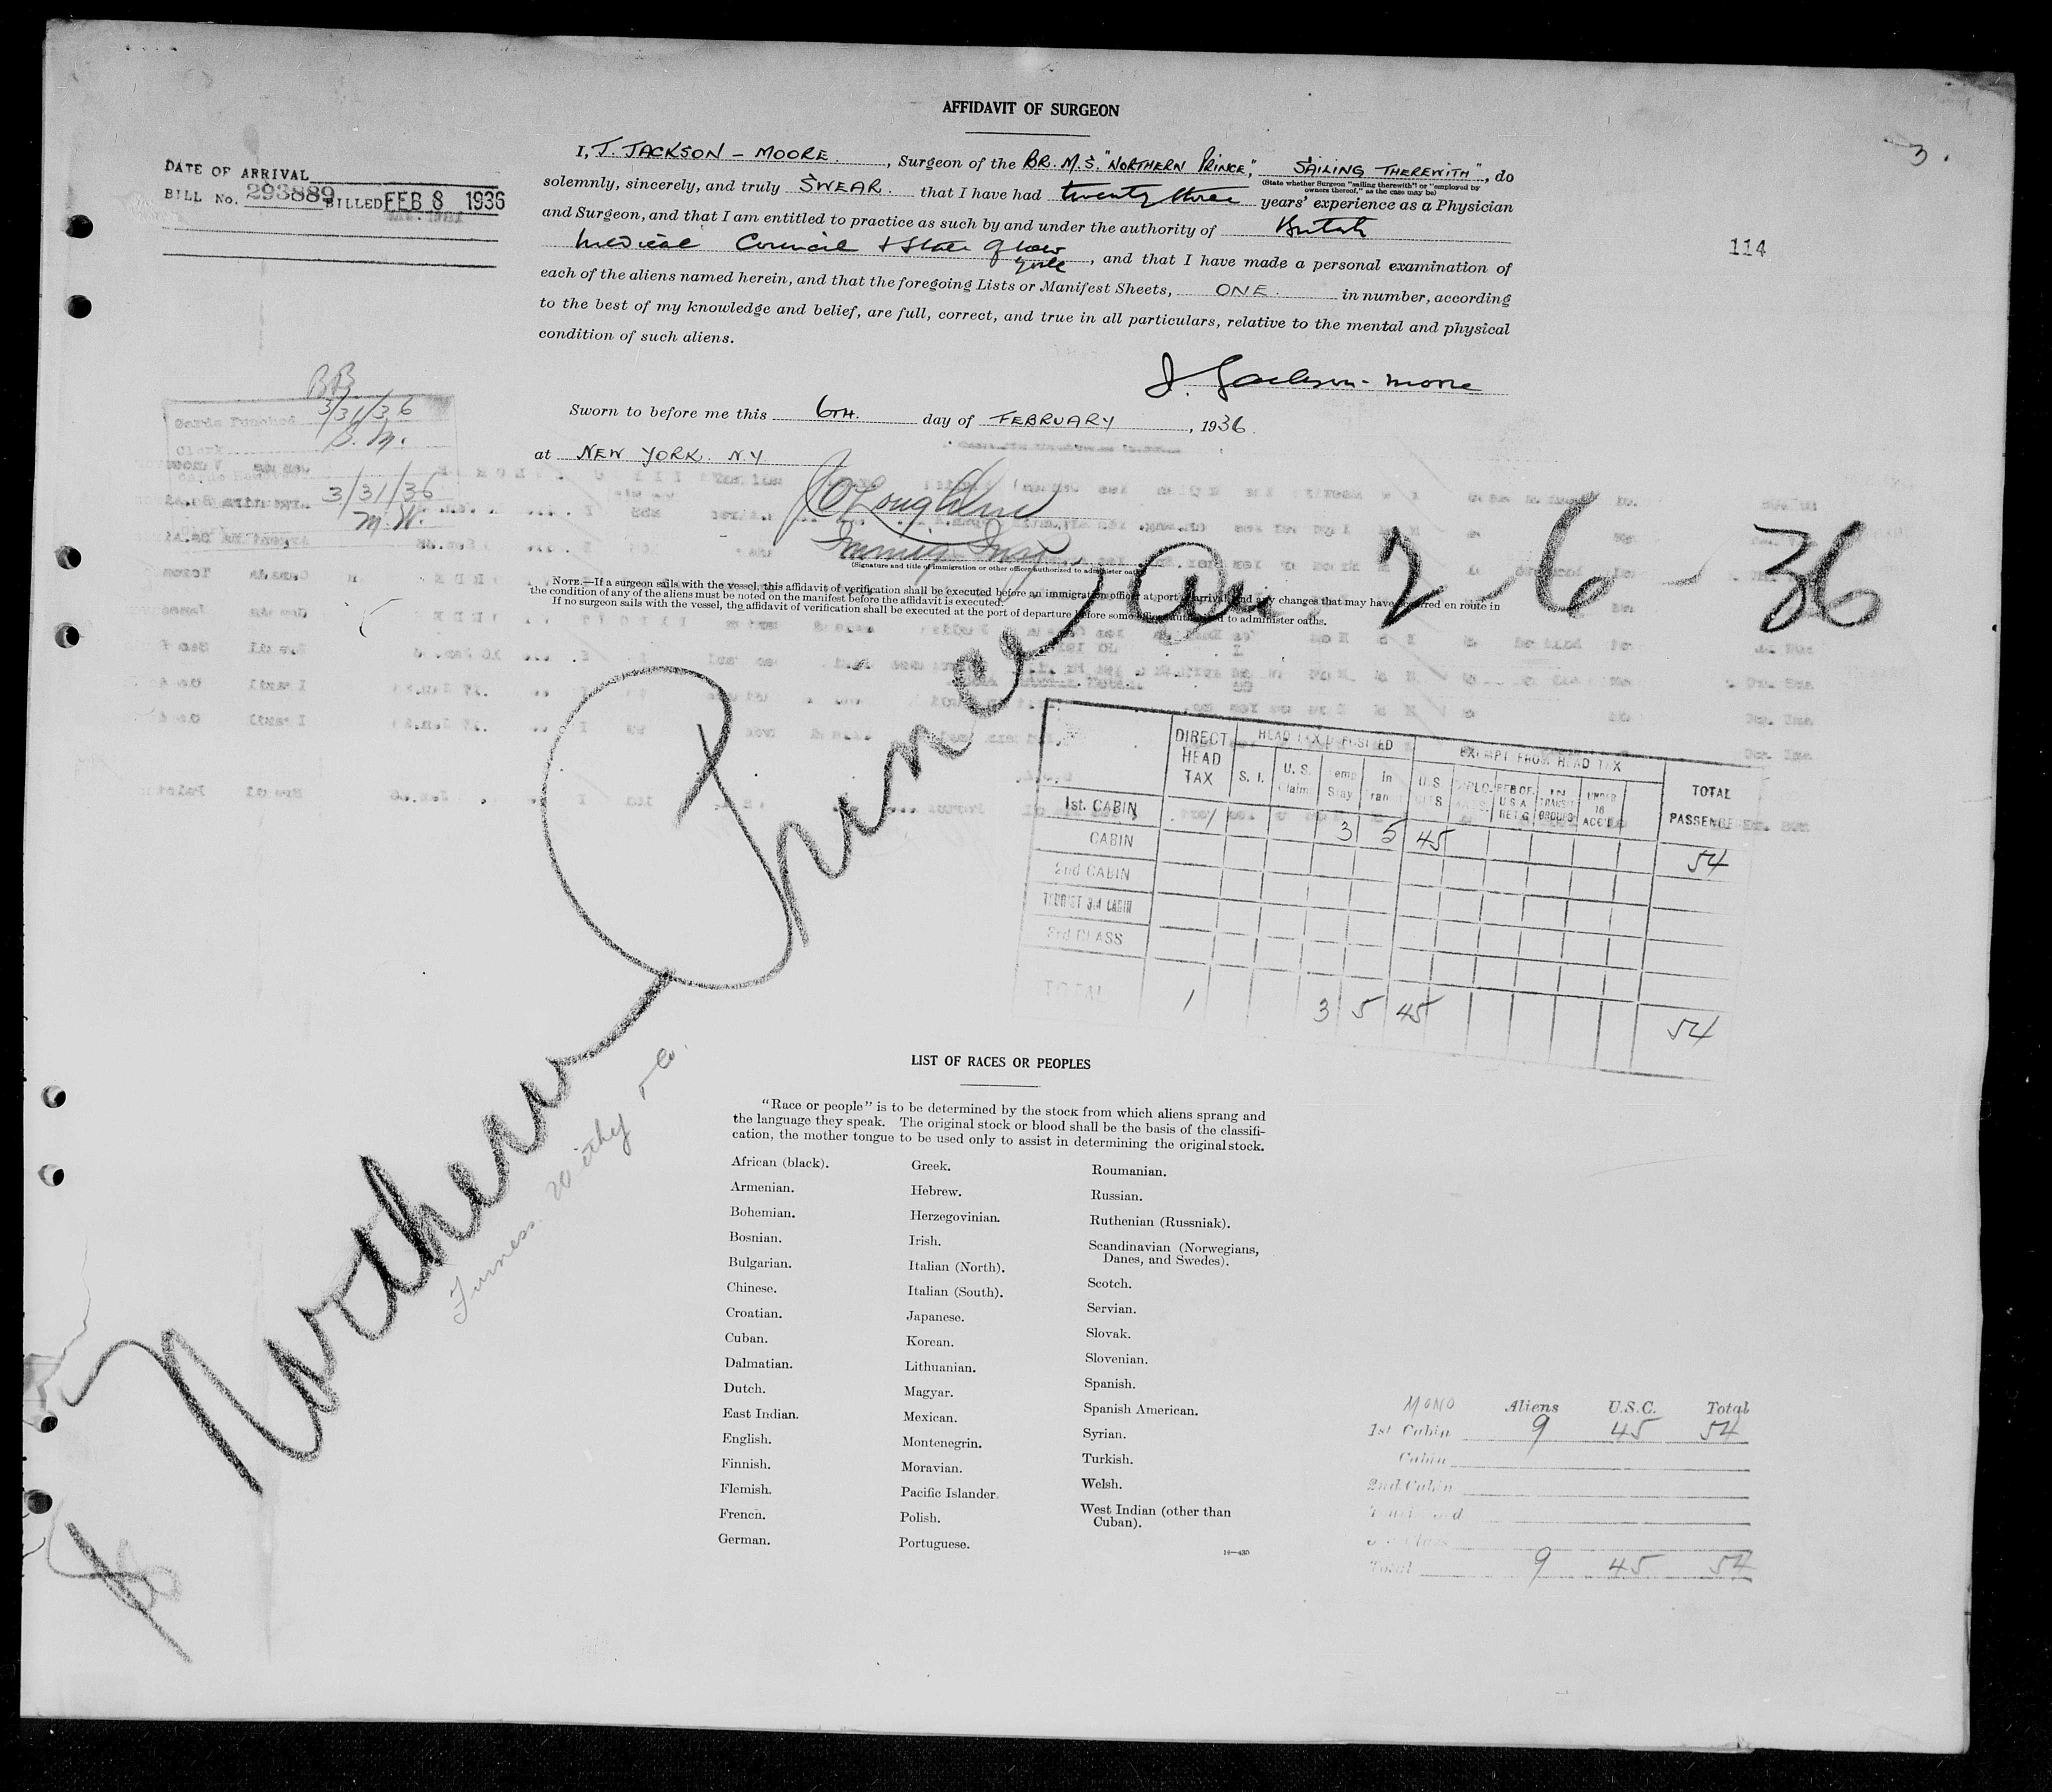 AFFIDAVIT OF SURGEON
3.
I, J. JACKSON – MOORE, Surgeon of the BR. M.S. "NORTHERN PRINCE", SAILING THEREWITH", do
(State whether Surgeon "sailing therewith" or "employed by
owners thereof," as the case may be)
solemnly, sincerely, and truly SWEAR that I have had twenty three years' experience as a Physician
and Surgeon, and that I am entitled to practice as such by and under the authority of British
Medical Council & State of New
York, and that I have made a personal examination of
each of the aliens named herein, and that the foregoing Lists or Manifest Sheets, ONE in number, according
to the best of my knowledge and belief, are full, correct, and true in all particulars, relative to the mental and physical
condition of such aliens.
J. Jackson-Moore
Sworn to before me this 6TH. day of FEBRUARY, 1936.
at NEW YORK. N.Y
Immig Insp
(Signature and title of immigration or other officer authorized to administer oaths
NOTE.—If a surgeon sails with the vessel, this affidavit of verification shall be executed before an immigration officer at port of arrival and any changes that may have occurred en route in
the condition of any of the aliens must be noted on the manifest before the affidavit is executed.
If no surgeon sails with the vessel, the affidavit of verification shall be executed at the port of departure before some officer authorized to administer oaths.
DATE OF ARRIVAL
BILL No. 293889 BILLED FEB 8 1936
114
BB
Cards Punched 3/31/36
Clerk S.M.
3/31/36
M.W.
Northern Prince
2-6-36
Furness Withy & Co.
DIRECT HEAD TAX
HEAD TAX DEPOSITED
EXEMPT FROM HEAD TAX
TOTAL PASSENGERS
S. I. U. S. Claim Temp Stay In Transit
U.S. CITS DIPLO- RES OF U S A RET'G TRANSIT GROUPS UNDER 16 ACC'D
1st. CABIN 1 3 5 45 54
CABIN
2nd CABIN
TOURIST 3rd CABIN
3rd CLASS
TOTAL 1 3 5 45 54
LIST OF RACES OR PEOPLES
"Race or people" is to be determined by the stock from which aliens sprang and
the language they speak. The original stock or blood shall be the basis of the classifi-
cation, the mother tongue to be used only to assist in determining the original stock.
African (black).
Armenian.
Bohemian.
Bosnian.
Bulgarian.
Chinese.
Croatian.
Cuban.
Dalmatian.
Dutch.
East Indian.
English.
Finnish.
Flemish.
French.
German.
Greek.
Hebrew.
Herzegovinian.
Irish.
Italian (North).
Italian (South).
Japanese.
Korean.
Lithuanian.
Magyar.
Mexican.
Montenegrin.
Moravian.
Pacific Islander.
Polish.
Portuguese.
Roumanian.
Russian.
Ruthenian (Russniak).
Scandinavian (Norwegians,
Danes, and Swedes).
Scotch.
Servian.
Slovak.
Slovenian.
Spanish.
Spanish American.
Syrian.
Turkish.
Welsh.
West Indian (other than
Cuban).
MONO Aliens U.S.C. Total
1st Cabin 9 45 54
Cabin
2nd Cabin
Total 9 45 54